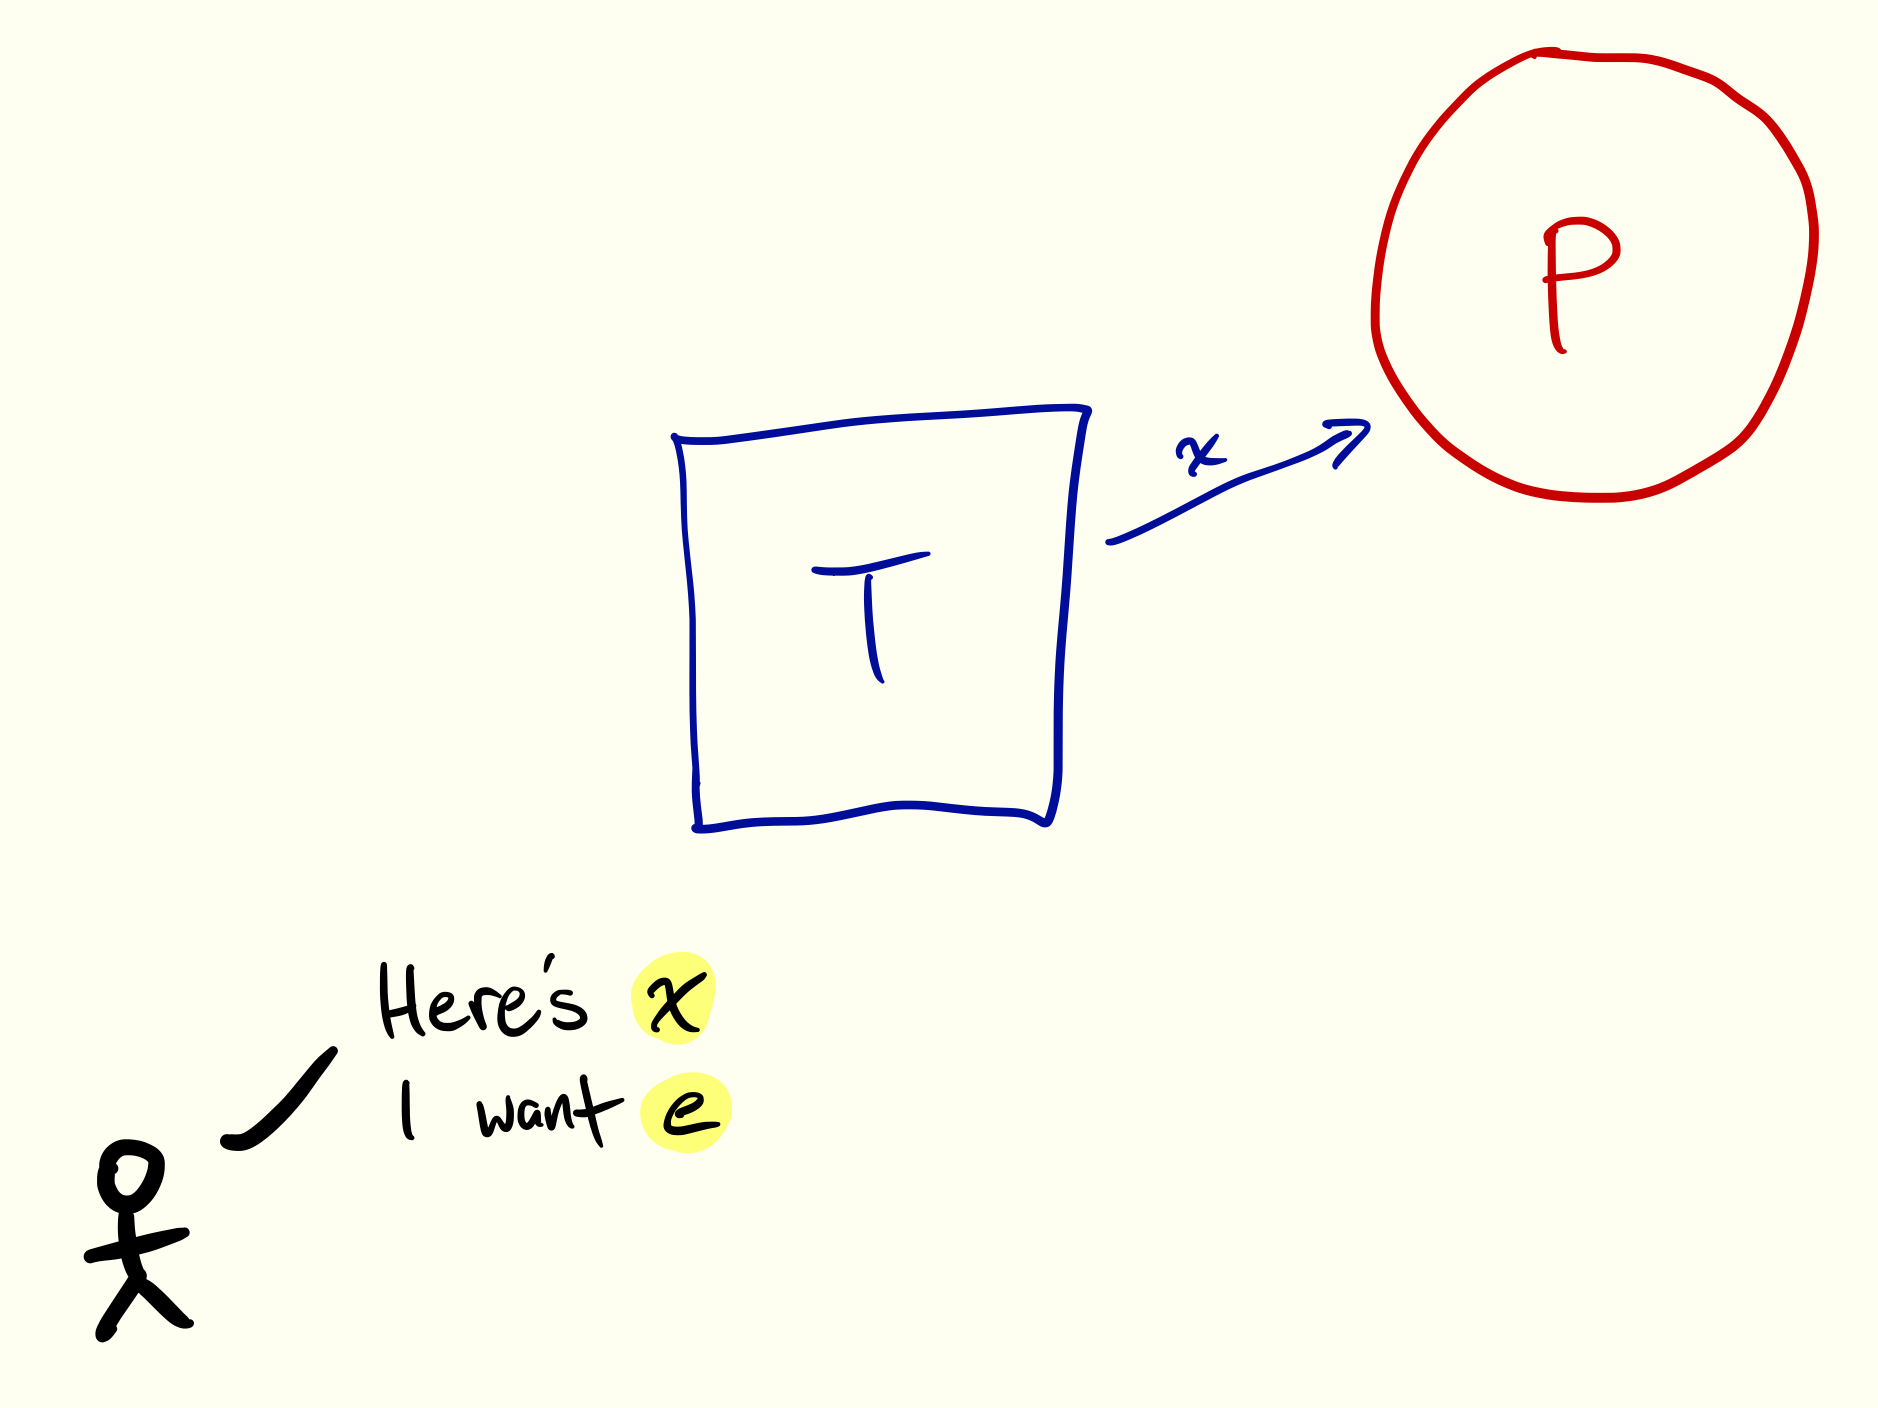 P
x
T
Here's x
I want e